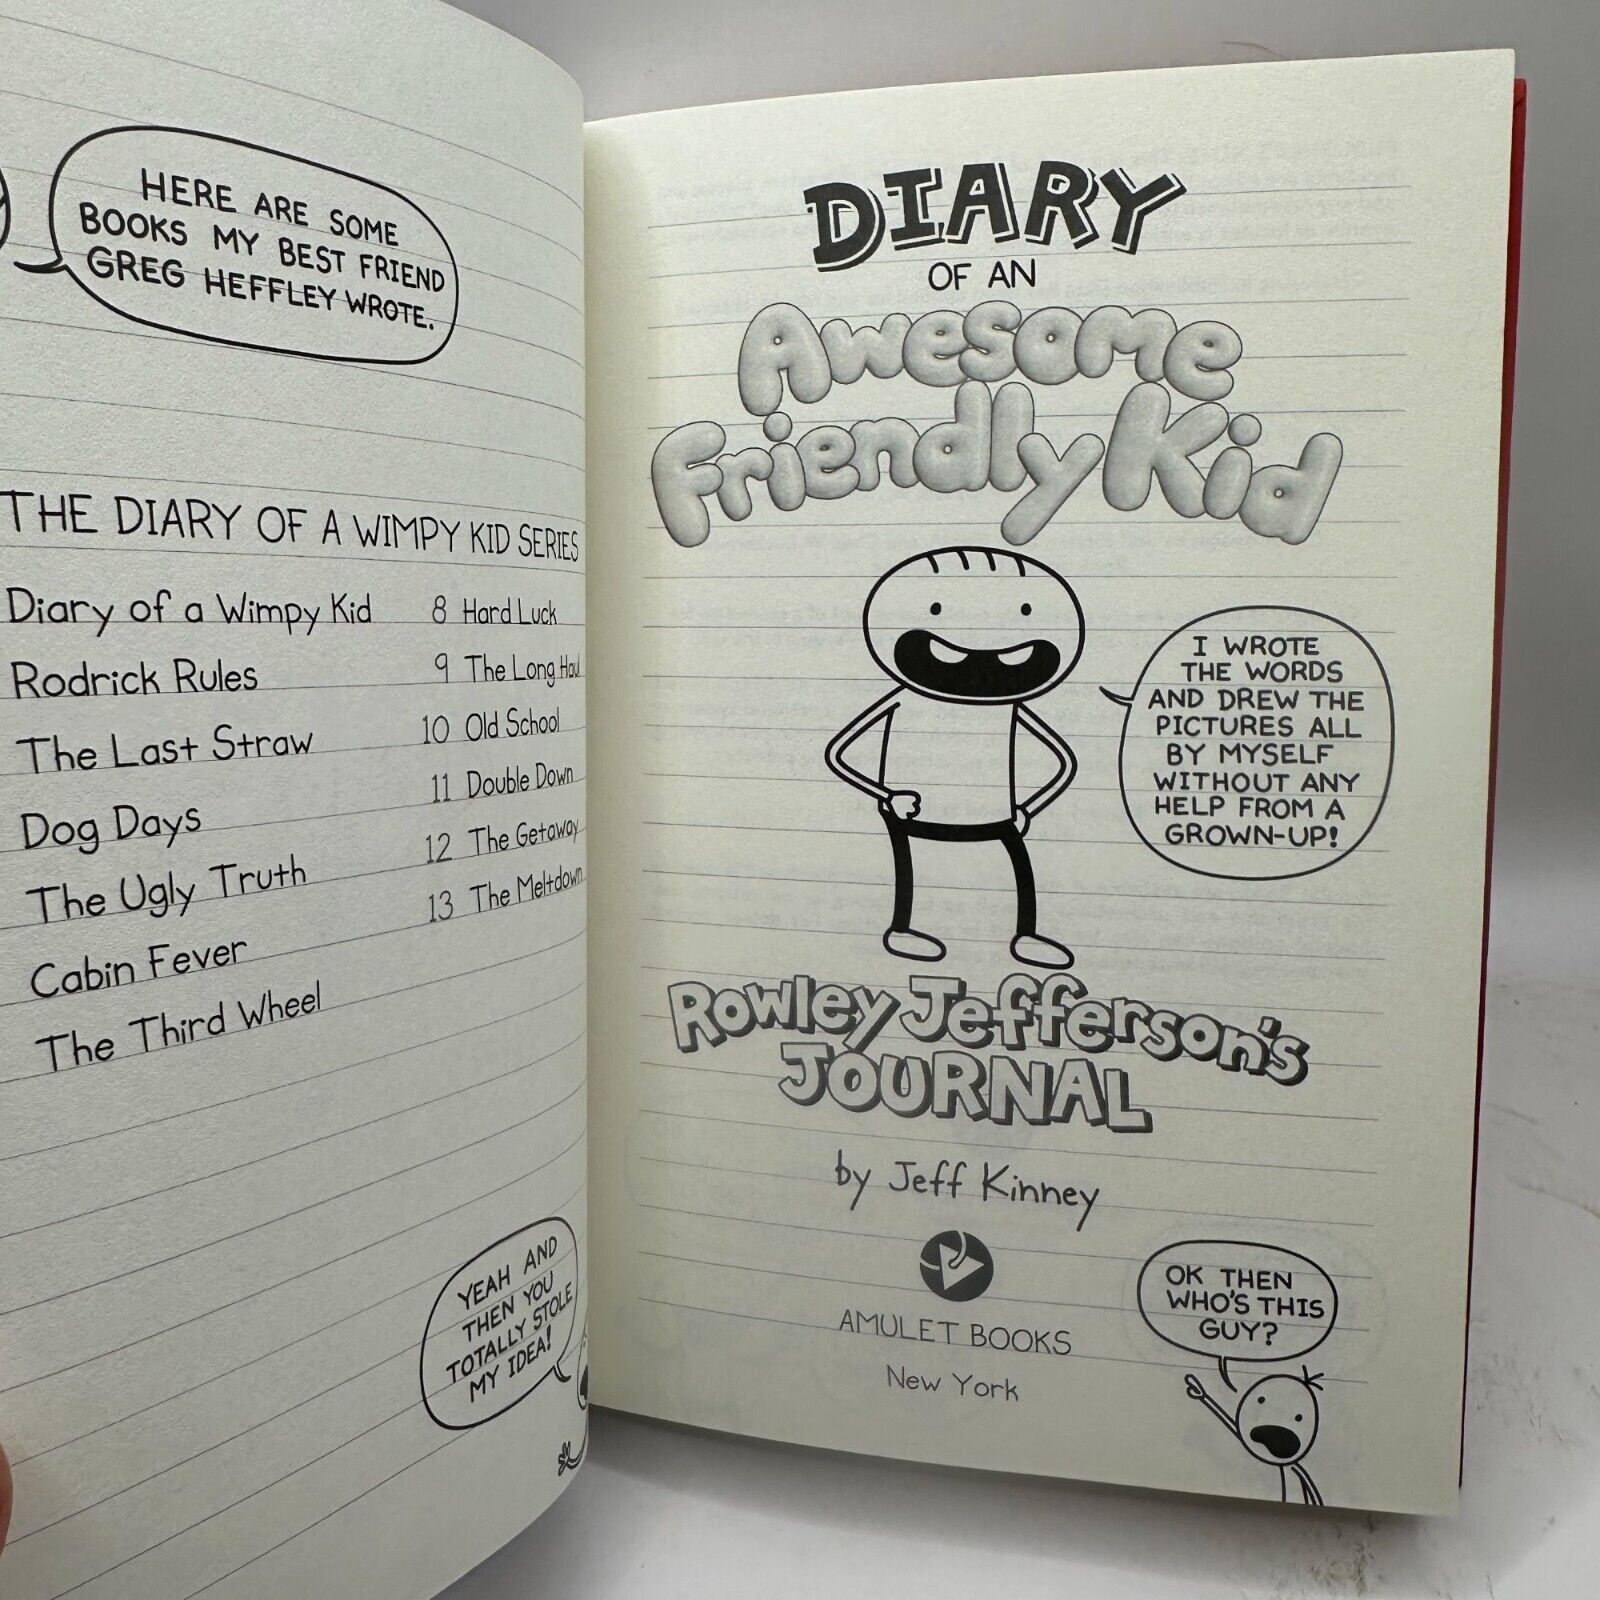 HERE ARE SOME
BOOKS MY BEST FRIEND
GREG HEFFLEY WROTE.
THE DIARY OF A WIMPY KID SERIES
Diary of a Wimpy Kid
Rodrick Rules
The Last Straw
Dog Days
The Ugly Truth
Cabin Fever
The Third Wheel
8 Hard Luck
9 The Long Haul
10 Old School
11 Double Down
12 The Getaway
13 The Meltdown
YEAH AND
THEN YOU
TOTALLY STOLE
MY IDEA!
DIARY
OF AN
Awesome
Friendly Kid
I WROTE
THE WORDS
AND DREW THE
PICTURES ALL
BY MYSELF
WITHOUT ANY
HELP FROM A
GROWN-UP!
Rowley Jefferson's
JOURNAL
by Jeff Kinney
AMULET BOOKS
New York
OK THEN
WHO'S THIS
GUY?